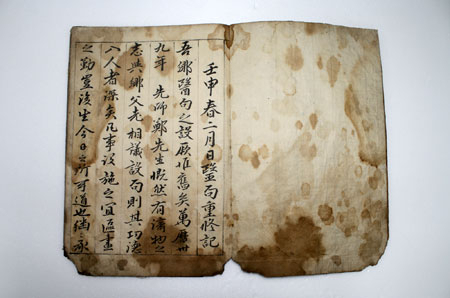 壬申春二月日醫局重修記
吾鄉醫局之設厥惟舊矣萬曆卅
九年 先師鄭先生慨然有濟物之
志與鄉父老相議設局則其功德
入人者深矣凡事設施之宜區畫
之勤豈後生今日之所可道也